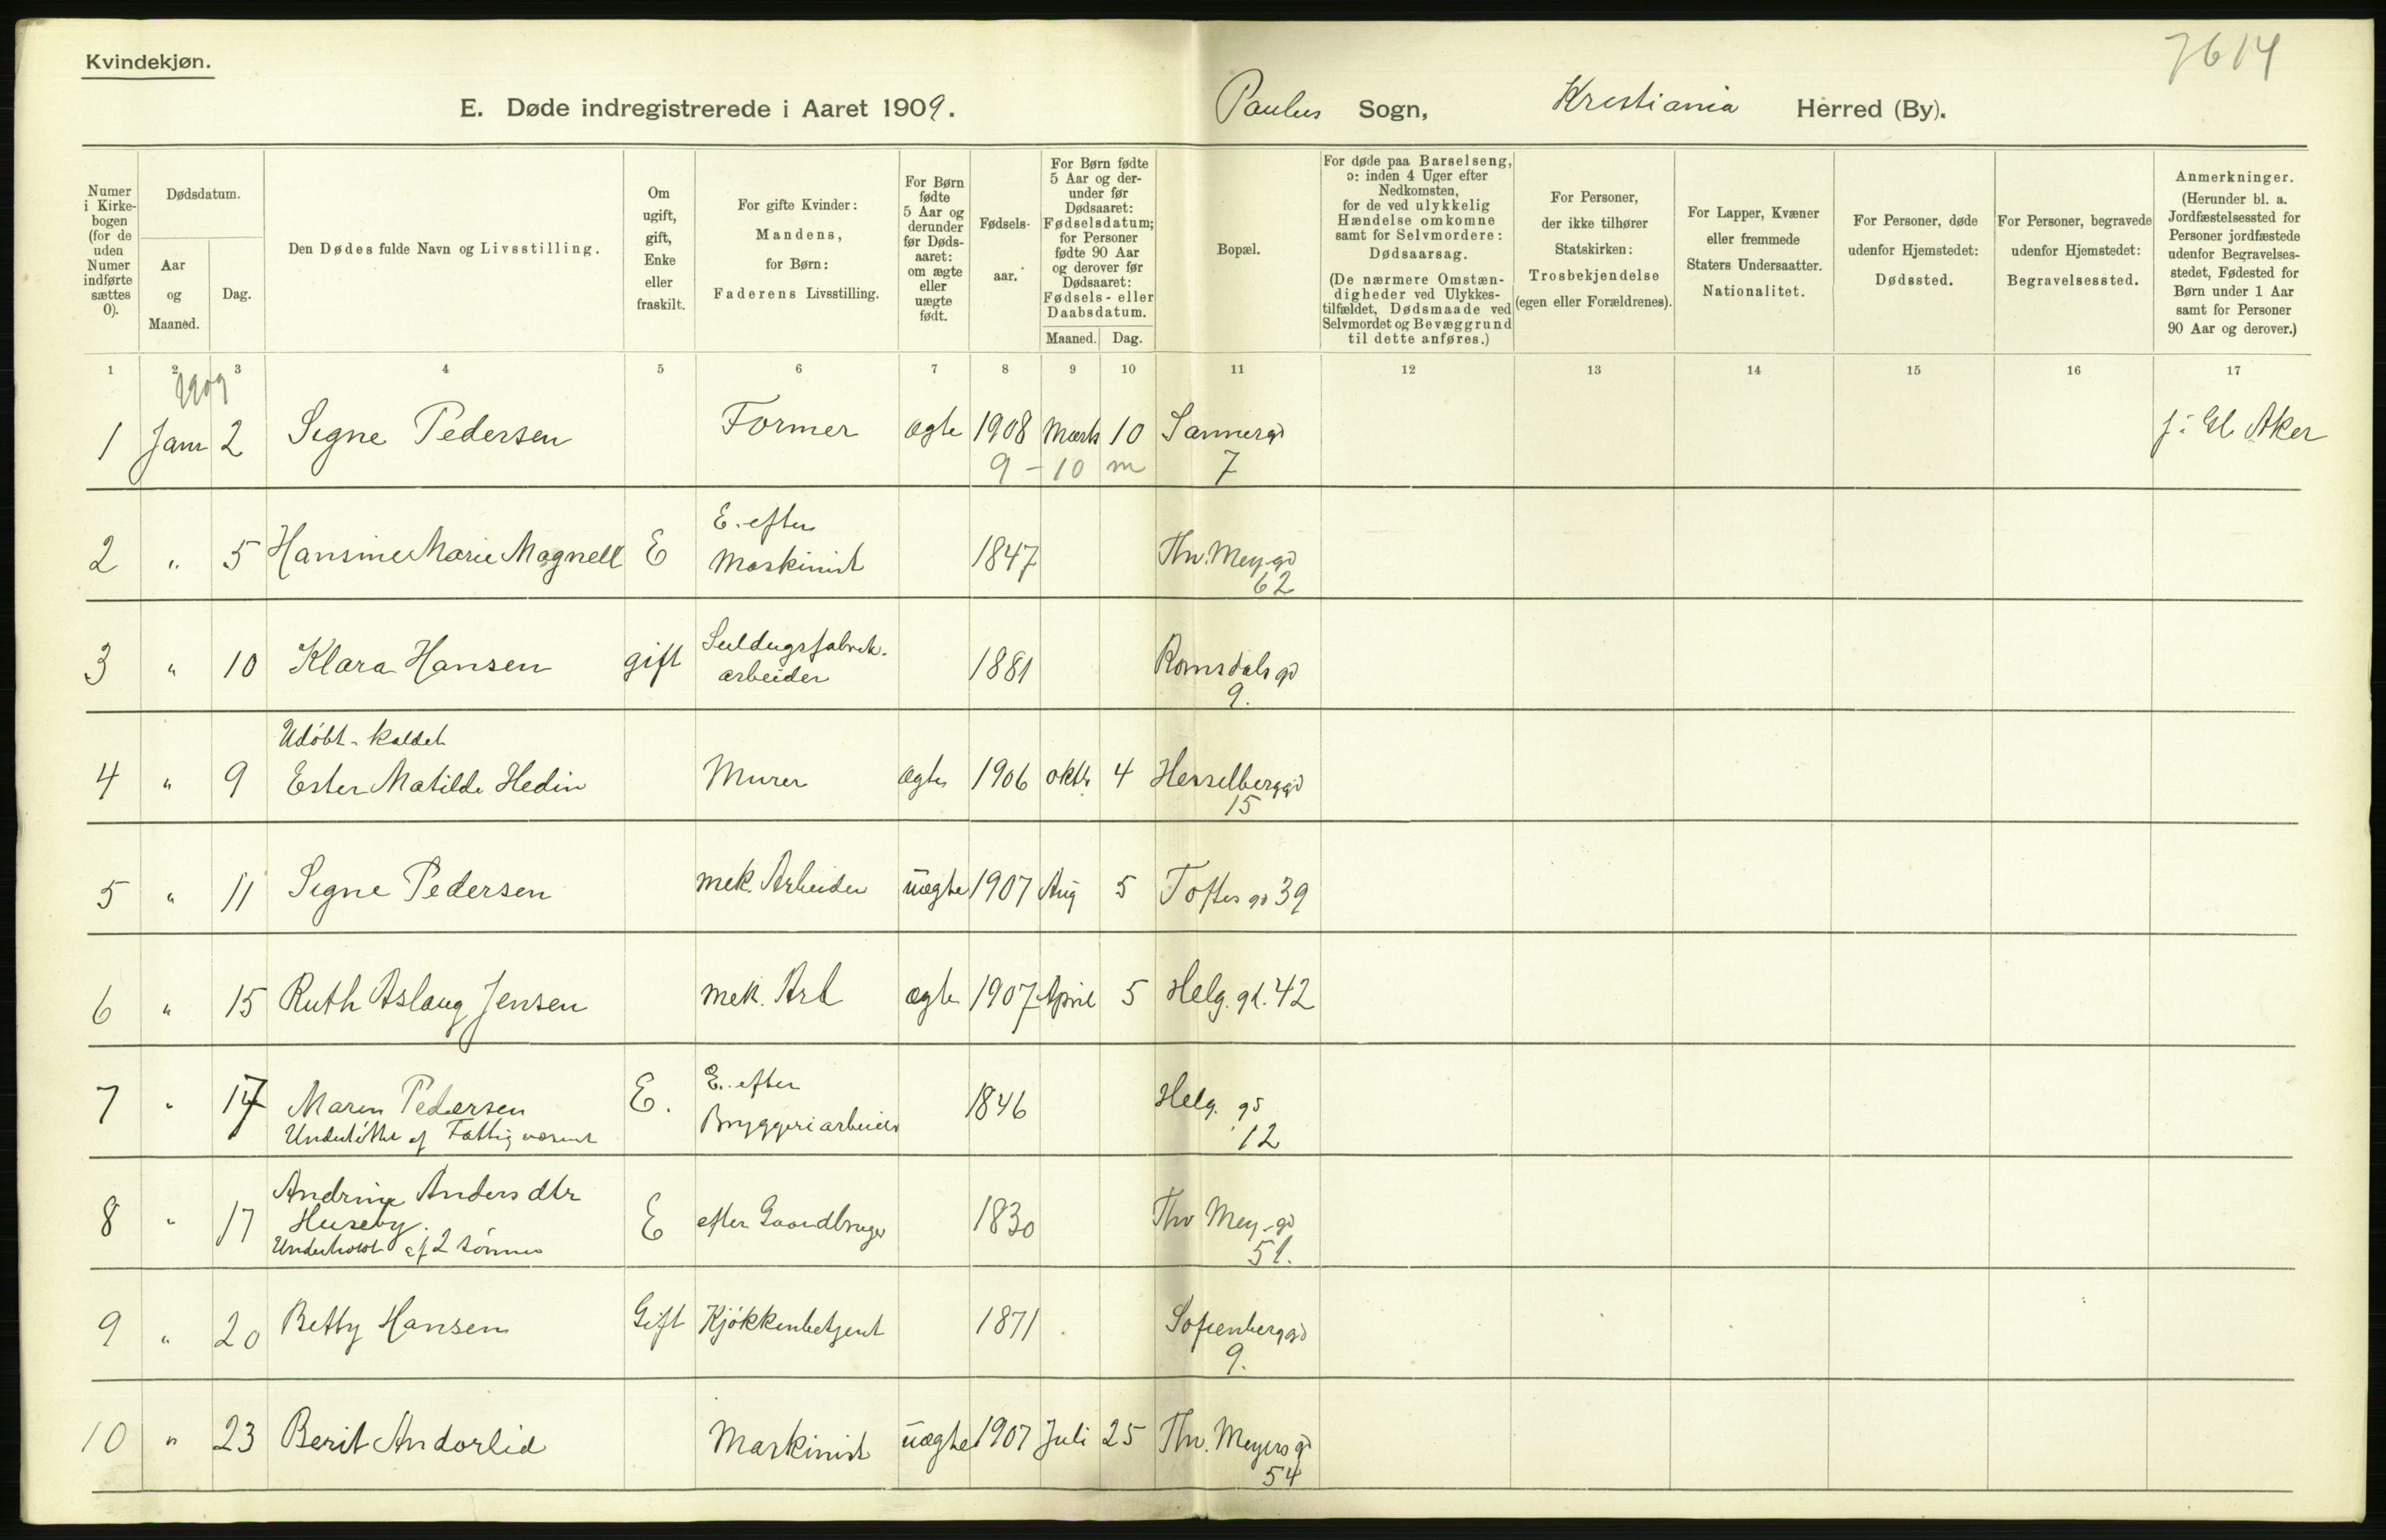 7614
Kvindekjøn.
E. Døde indregistrerede i Aaret 1909. Paulus Sogn, Kristiania Herred (By).
Numer i Kirkebogen (for de uden Numer indførte sættes 0).
Dødsdatum.
Aar og Maaned.
Dag.
Den Dødes fulde Navn og Livsstilling.
Om ugift, gift, Enke eller fraskilt.
For gifte Kvinder: Mandens, for Børn: Faderens Livsstilling.
For Børn fødte 5 Aar og derunder før Dødsaaret: om ægte eller uægte født.
Fødselsaar.
For Børn fødte 5 Aar og derunder før Dødsaaret: Fødselsdatum; for Personer fødte 90 Aar og derover før Dødsaaret: Fødsels- eller Daabsdatum.
Maaned. Dag.
Bopæl.
For døde paa Barselseng, ɔ: inden 4 Uger efter Nedkomsten, for de ved ulykkelig Hændelse omkomne samt for Selvmordere: Dødsaarsag.
(De nærmere Omstændigheder ved Ulykkestilfældet, Dødsmaade ved Selvmordet og Bevæggrund til dette anføres.)
For Personer, der ikke tilhører Statskirken: Trosbekjendelse (egen eller Forældrenes).
For Lapper, Kvæner eller fremmede Staters Undersaatter. Nationalitet.
For Personer, døde udenfor Hjemstedet: Dødssted.
For Personer, begravede udenfor Hjemstedet: Begravelsessted.
Anmerkninger. (Herunder bl. a. Jordfæstelsessted for Personer jordfæstede udenfor Begravelsesstedet, Fødested for Børn under 1 Aar samt for Personer 90 Aar og derover.)
1 2 3 4 5 6 7 8 9 10 11 12 13 14 15 16 17
1909
1 Janr 2 Signe Pedersen Former ægte 1908 Marts 10 Sannergd f. i Gl. Aker
9 - 10 m 7
E. efter
2 " 5 Hansine Marie Magnell E Maskinist 1847 Thv. Mey. gd
62
3 " 10 Klara Hansen gift Seildugsfabrik- 1881 Romsdals gd
arbeider 9.
Udøbt - kaldet
4 " 9 Ester Matilde Hedin Murer ægte 1906 oktb 4 Hesselberggd
15
5 " 11 Signe Pedersen mek. Arbeider uægte 1907 Aug 5 Toftes gd 39
6 " 15 Ruth Aslaug Jensen mek. Arb ægte 1907 April 5 Helg. gd. 42
E. efter
7 " 17 Maren Pedersen E. Bryggeriarbeider 1846 Helg. gd
Understøttet af Fattigvæsenet 12
Andrine Anders dtr
8 " 17 Huseby. E efter Gaardbruger 1830 Thv Mey. gd
Underholdt af 2 sønner 51.
9 " 20 Betty Hansen Gift Kjøkkenbetjent 1871 Sofienberggd
9.
10 " 23 Berit Andorlid Maskinist uægte 1907 Juli 25 Thv. Meyers gd
54